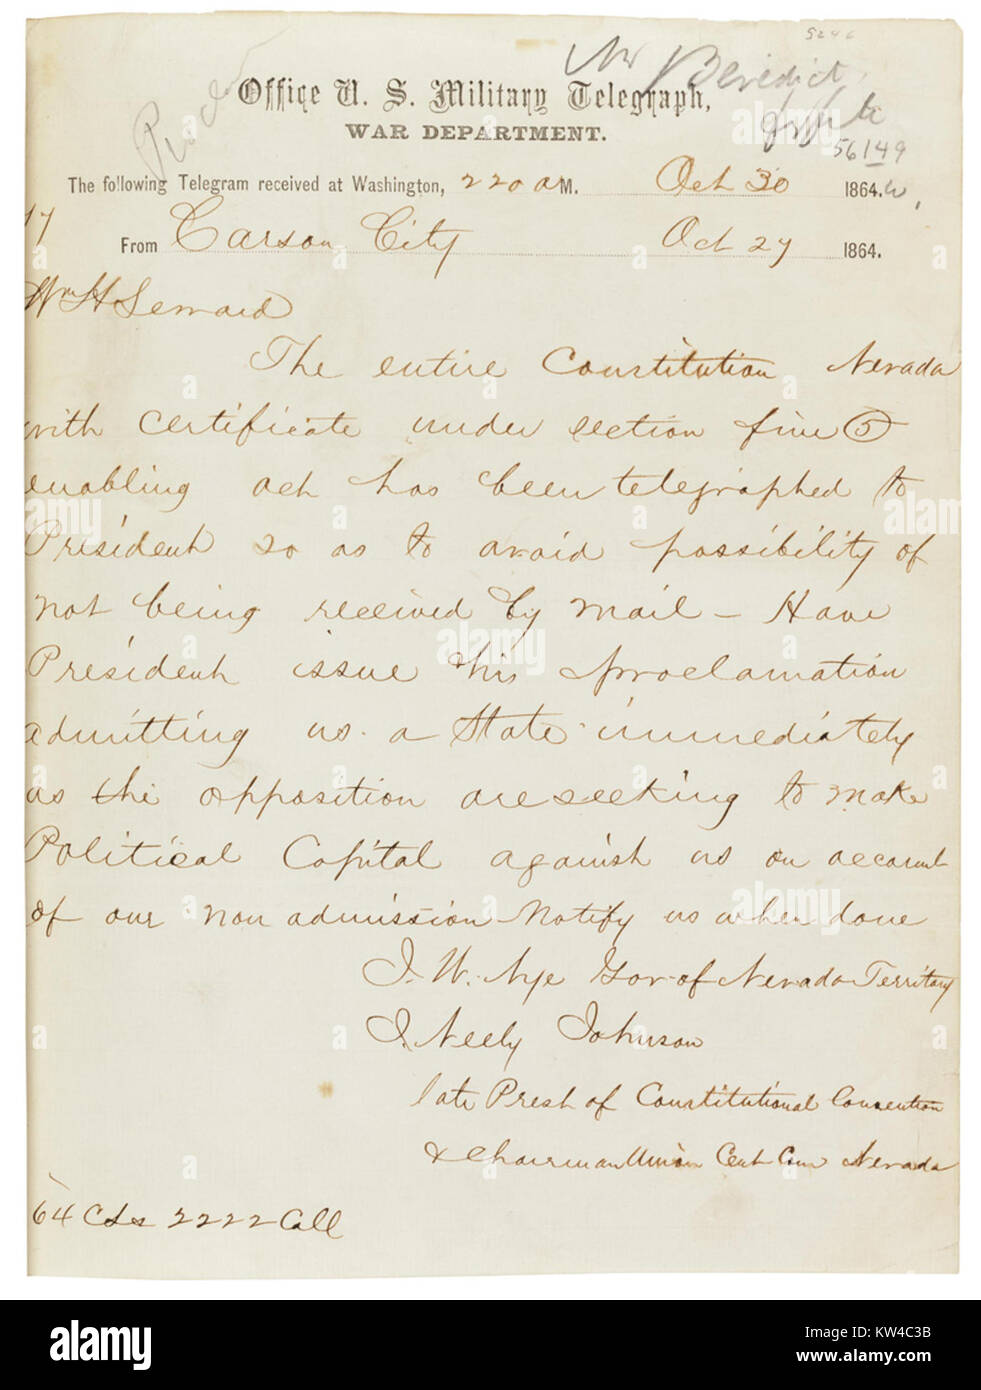 5246
Mr Benedict
Office U. S. Military Telegraph,
WAR DEPARTMENT.
56149
The following Telegram received at Washington, 220 a M. Oct 30 1864.
17
From Carson City Oct 27 1864.
Wm H Seward
The entire Constitution Nevada
with certificate under section five (5)
enabling act has been telegraphed to
President so as to avoid possibility of
not being received by mail – Have
President issue his proclamation
admitting us a State immediately
as the opposition are seeking to make
Political Capital against us on account
of our non admission Notify us when done
J. W. Nye Gov of Nevada Territory
J. Neely Johnson
late Prest of Constitutional Convention
& Chairman Union Cent Com Nevada
64 Cts 2222 Coll
alamy
Image ID: KW4C3B
www.alamy.com